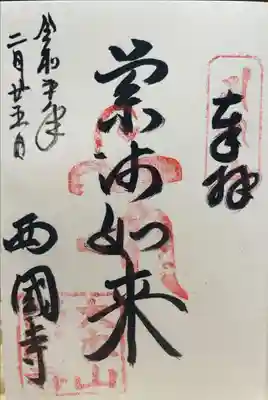 奉拜
薬師如来
西國寺
令和五年
二月廿五日